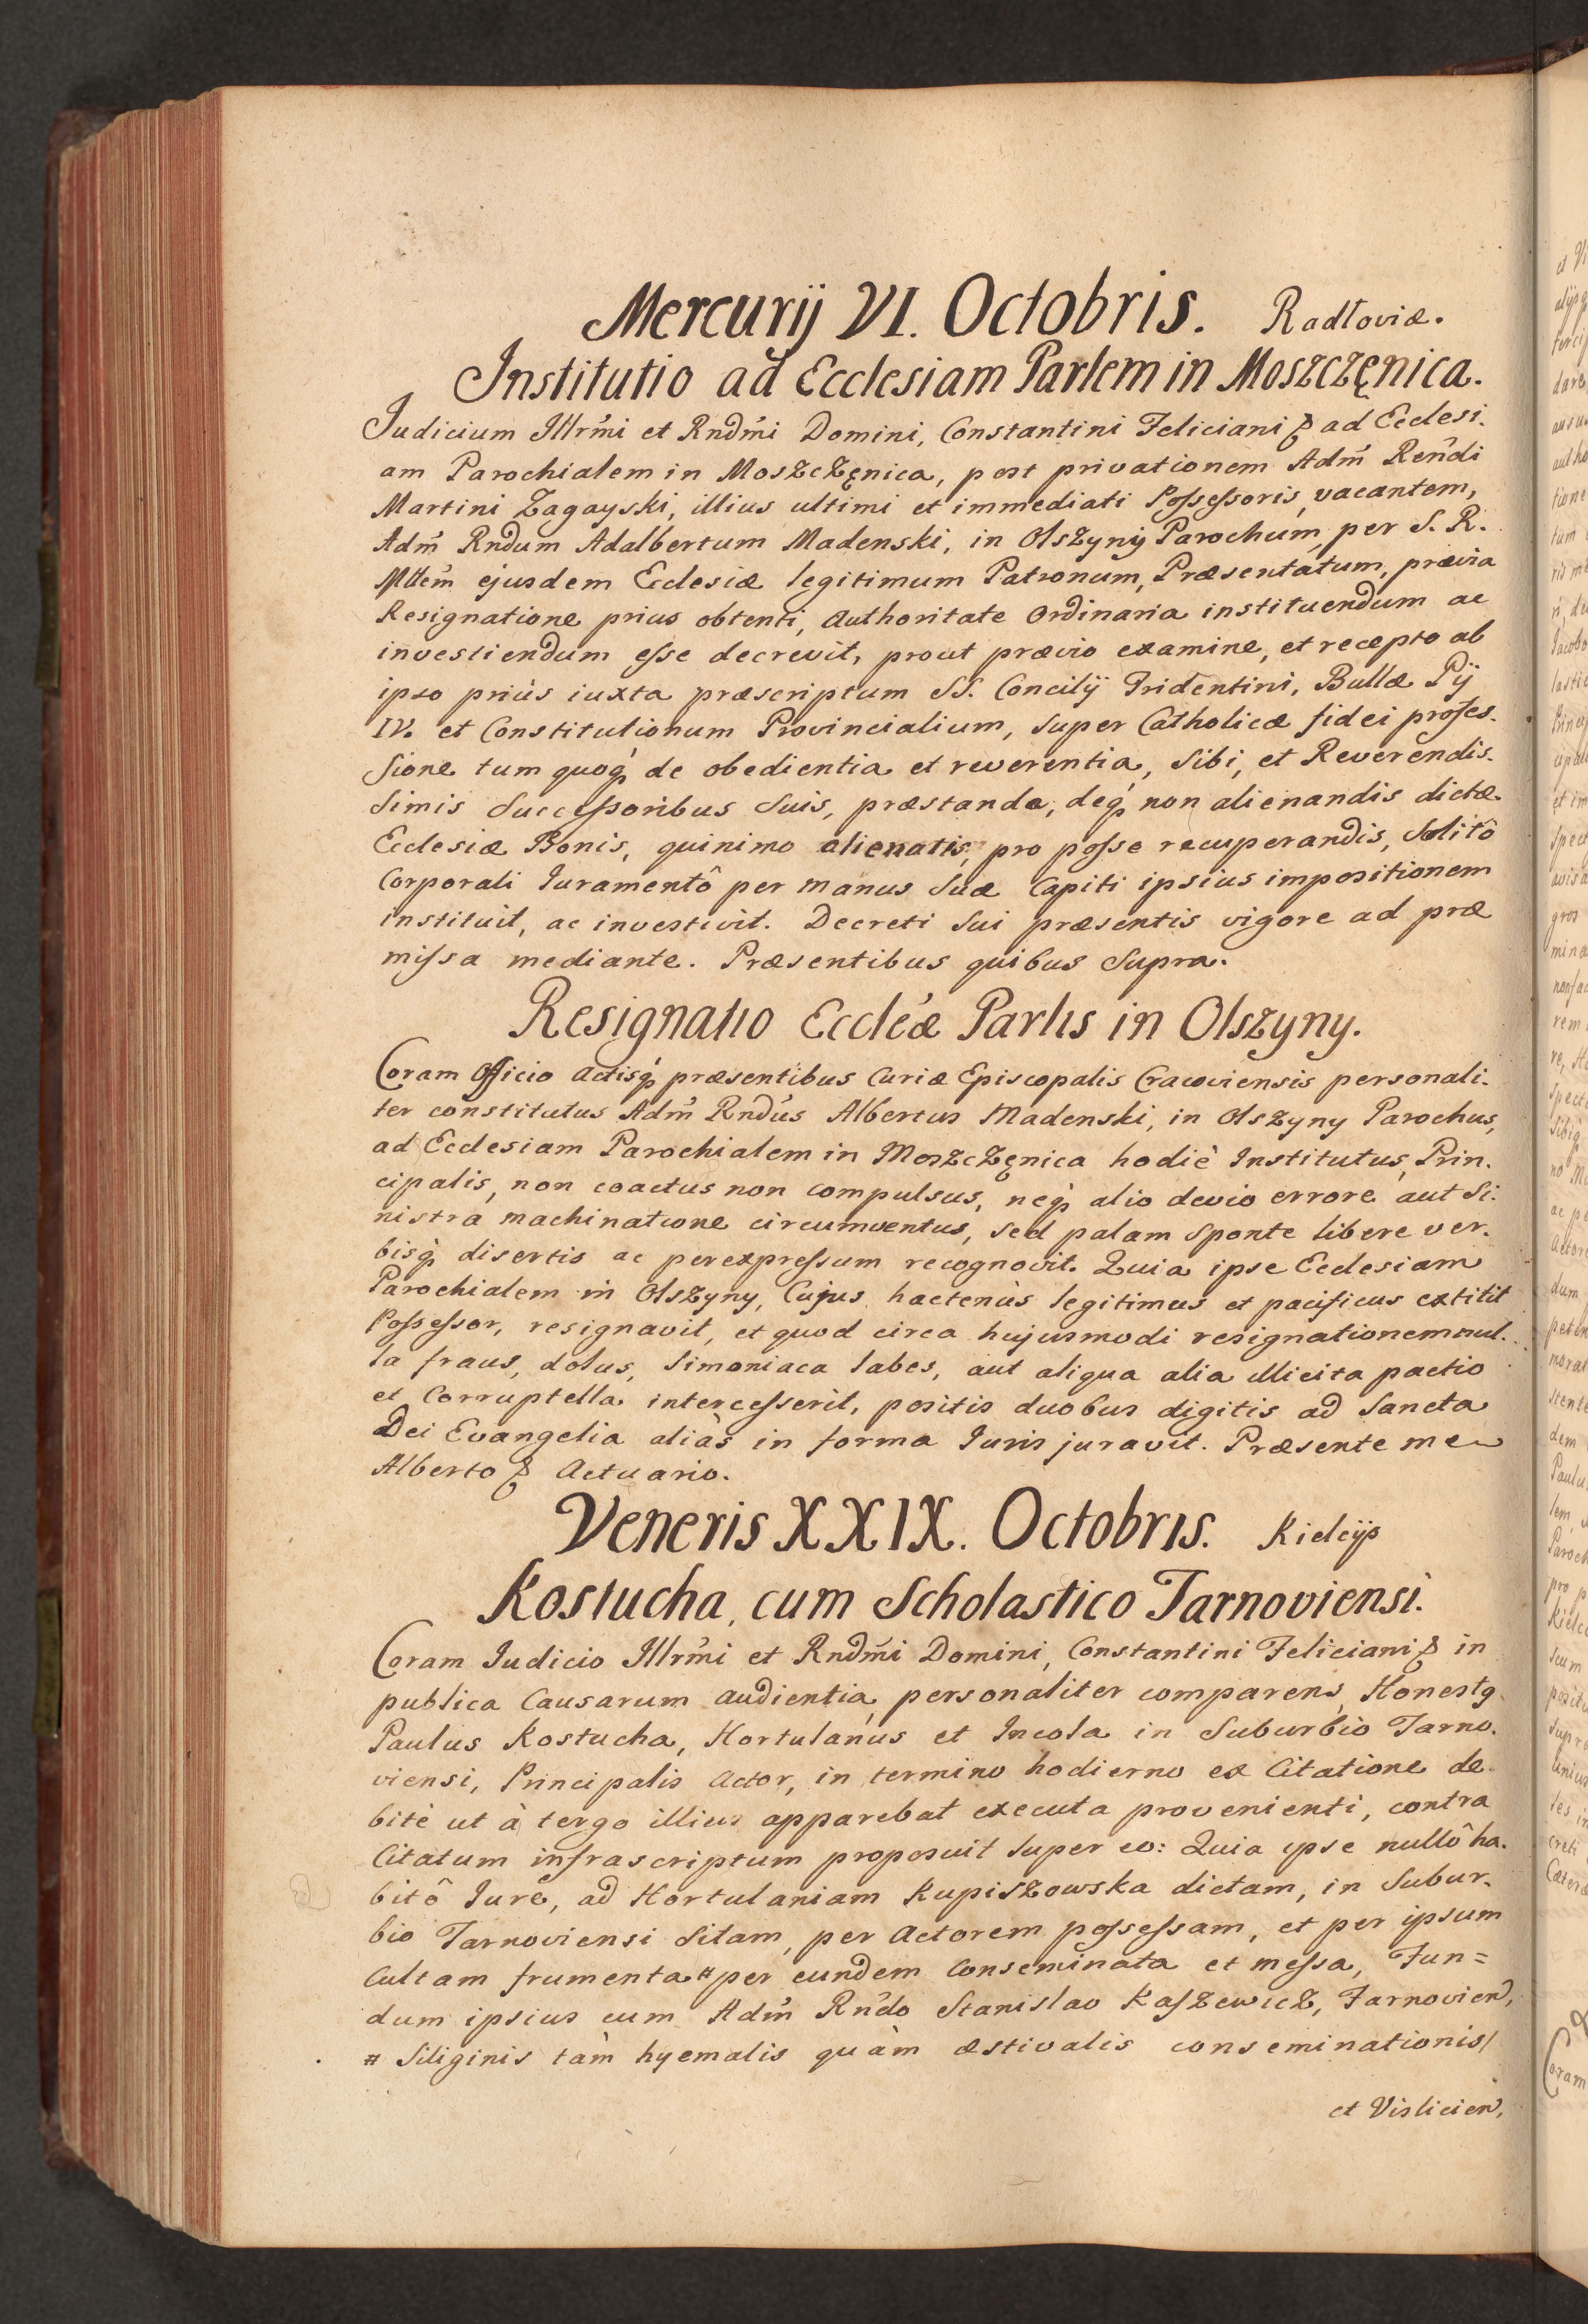 Mercurij VI. Octobris. Radłoviæ.
Institutio ad Ecclesiam Parlem in Moszczęnica.
Judicium Illrm̃i et Rndm̃i Domini, Constantini Feliciani & ad Ecclesi-
am Parochialem in Moszczęnica, post privationem Adm̃ Ren̄di
Martini Zagayski, illius ultimi et immediati Possessoris, vacantem,
Adm̃ Rndum Adalbertum Madenski, in Olszyny Parochum, per S. R.
Mttem̃ ejusdem Ecclesiæ legitimum Patronum, Præsentatum, prævia
Resignatione prius obtenti, Authoritate Ordinaria instituendum ac
investiendum esse decrevit, prout prævio examine, et recepto ab
ipso priùs iuxta præscriptum SS. Concilij Tridentini, Bullæ Pij
IV. et Constitutionum Provincialium, super Catholicæ fidei profes-
sione tum quoq́ de obedientia et reverentia, Sibi, et Reverendis-
simis Successoribus Suis, præstanda, deq́ non alienandis dictæ
Ecclesiæ Bonis, quinimo alienatis, pro posse recuperandis, Solitô
Corporali Juramentô per manus Suæ Capiti ipsius impositionem
instituit, ac investivit. Decreti Sui præsentis vigore ad præ
missa mediante. Præsentibus quibus Supra.
Resignatio Eccleæ Parlis in Olszyny.
Coram Officio Actisq́ præsentibus Curiæ Episcopalis Cracoviensis personali-
ter constitutus Adm̃ Rndus Albertus Madenski, in Olszyny Parochus,
ad Ecclesiam Parochialem in Moszczęnica hodiè Institutus, Prin-
cipalis, non coactus non compulsus, neq́ alio devio errore aut Si-
nistra machinatione circumventus, sed palam sponte libere ver-
bisq́ disertis ac per expressum recognovit. Quia ipse Ecclesiam
Parochialem in Olszyny, Cujus hactenùs legitimus et pacificus extitit
Possessor, resignavit, et quod circa hujusmodi resignationem nul-
la fraus, dolus, simoniaca labes, aut aliqua alia illicita pactio
et Corruptella intercesserit, positis duobus digitis ad Sancta
Dei Evangelia aliàs in forma Juris juravit. Præsente me
Alberto & Actuario.
Veneris XXIX. Octobris. Kielcijs
Kostucha, cum Scholastico Tarnoviensi.
Coram Iudicio Illrm̃i et Rndm̃i Domini, Constantini Feliciani & in
publica Causarum audientia, personaliter comparens, Honestq
Paulus Kostucha, Hortulanus et Incola in Suburbio Tarno-
viensi, Principalis Actor, in termino hodierno ex Citatione de-
bitè ut à tergo illius apparebat executa provenienti, contra
Citatum infrascriptum proposuit super eo: Quia ipse nullô ha-
bitô Jure, ad Hortulaniam Kupiszowska dictam, in Subur-
bio Tarnoviensi Sitam, per Actorem possessam, et per ipsum
Cultam frumenta # per eundem Conseminata et messa, Fun=
dum ipsius cum Adm̃ Rndo Stanislao Kaszewicz, Tarnovien,
# Siliginis tàm hyemalis quàm æstivalis conseminationis/
et Vislicien,